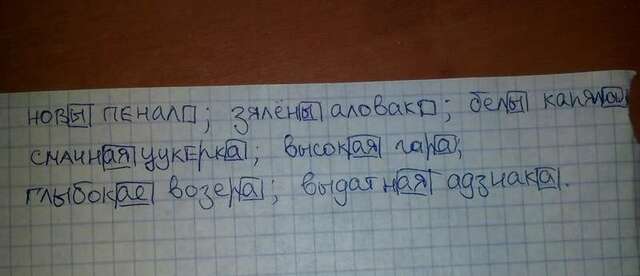 новы пенал; зялёны аловак; белы капялю
смачная цукерка; высокая гара;
глыбокае возера; выдатная адзнака.